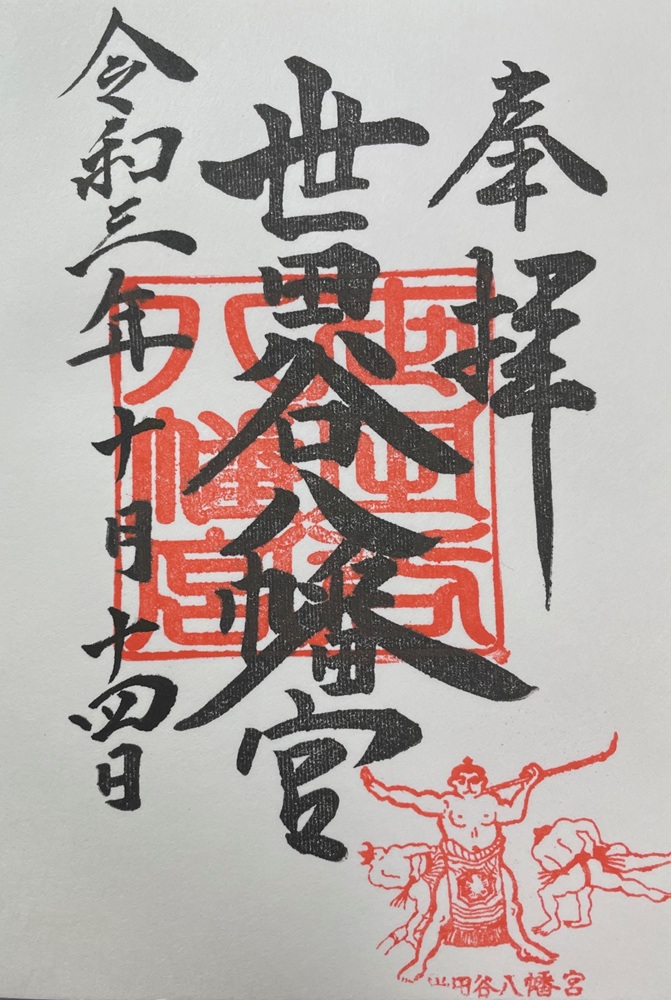 奉拝
世田谷八幡宮
令和三年十月十四日
世田谷
八幡宮
世田谷八幡宮